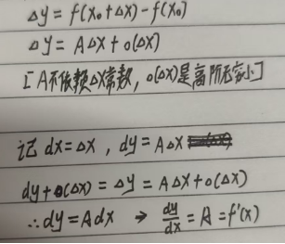 Δy = f(x₀+Δx)-f(x₀)
Δy = AΔx + o(Δx)
[A不依赖Δx常数, o(Δx)是高阶无穷小]
记 dx=Δx, dy=AΔx
dy+o(Δx) = Δy = AΔx+o(Δx)
∴dy=Adx → dy/dx = A = f'(x)